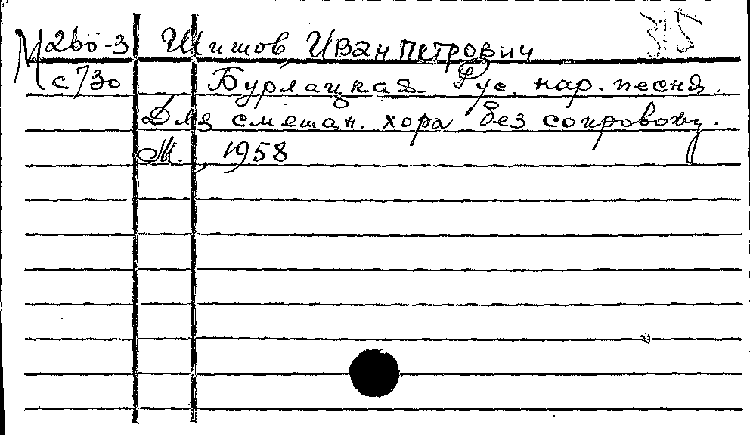 М 260-3 Шишов, Иван Петрович
с730 Бурлацкая. Рус. нар. песня.
Для смешан. хора без сопровожд.
М., 1958